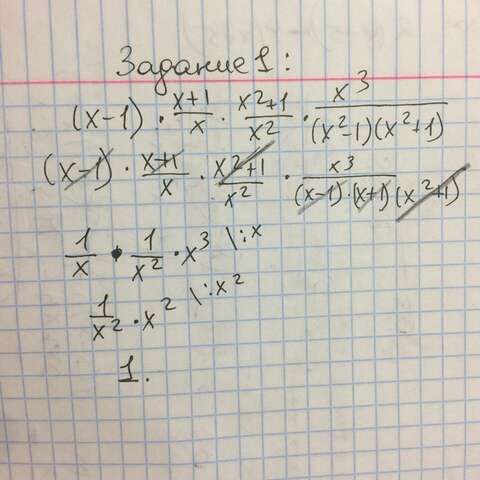 Задание 1:
(x-1) · x+1/x · x²+1/x² · x³/(x²-1)(x²+1)
(x-1) · x+1/x · x²+1/x² · x³/(x-1)·(x+1)(x²+1)
1/x · 1/x² · x³ \:x
1/x² · x² \:x²
1.